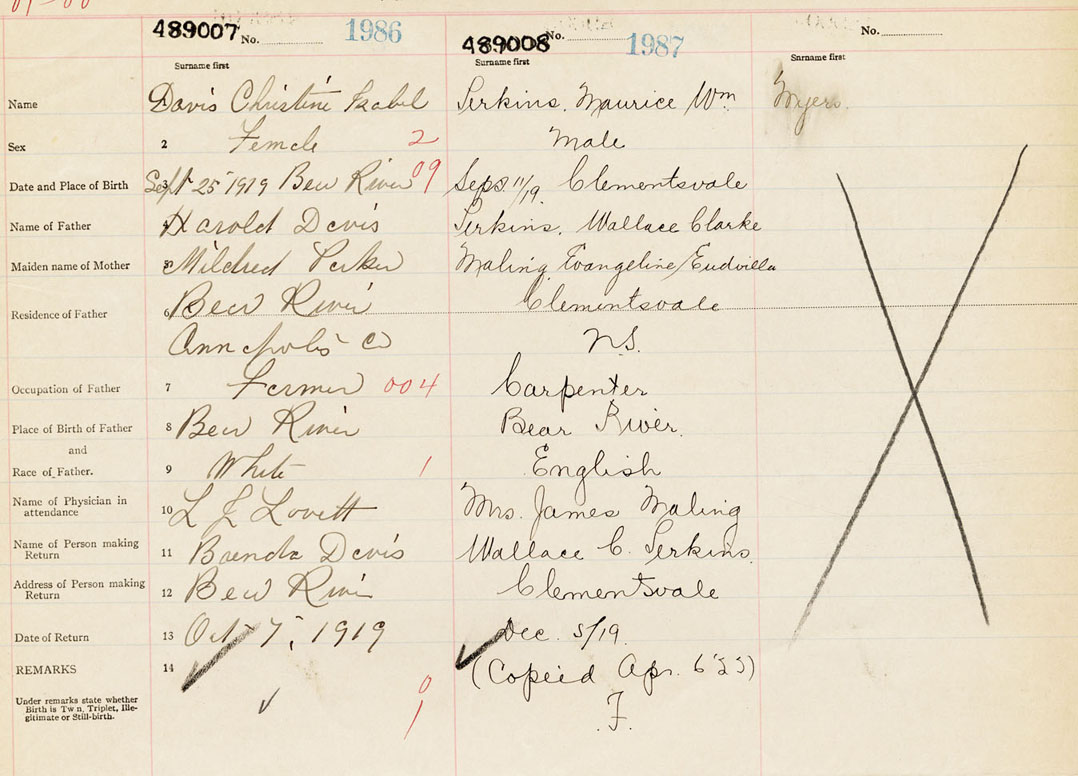 489007 No. 1986 489008 No. 1987 No.
Surname first Surname first Surname first
Name Davis Christine Isabel Perkins, Maurice Wm Myers
Sex 2 Female 2 Male
Date and Place of Birth 3 Sept 25 1919 Bear River 09 Sept. 11/19. Clementsvale
Name of Father 4 Harold Davis Perkins, Wallace Clarke
Maiden name of Mother 5 Mildred Parker Maling, Evangeline Eudvilla
Residence of Father 6 Bear River Clementsvale
Annapolis Co N.S.
Occupation of Father 7 Farmer 004 Carpenter
Place of Birth of Father 8 Bear River Bear River.
and
Race of Father. 9 White 1 English
Name of Physician in attendance 10 L J Lovett Mrs. James Maling
Name of Person making Return 11 Brenda Davis Wallace C. Perkins.
Address of Person making Return 12 Bear River Clementsvale
Date of Return 13 Oct 7, 1919 Dec. 5/19.
REMARKS 14 (Copied Apr. 6
Under remarks state whether 0
Birth is Twin, Triplet, Ille-
gitimate or Still-birth. 1 F.